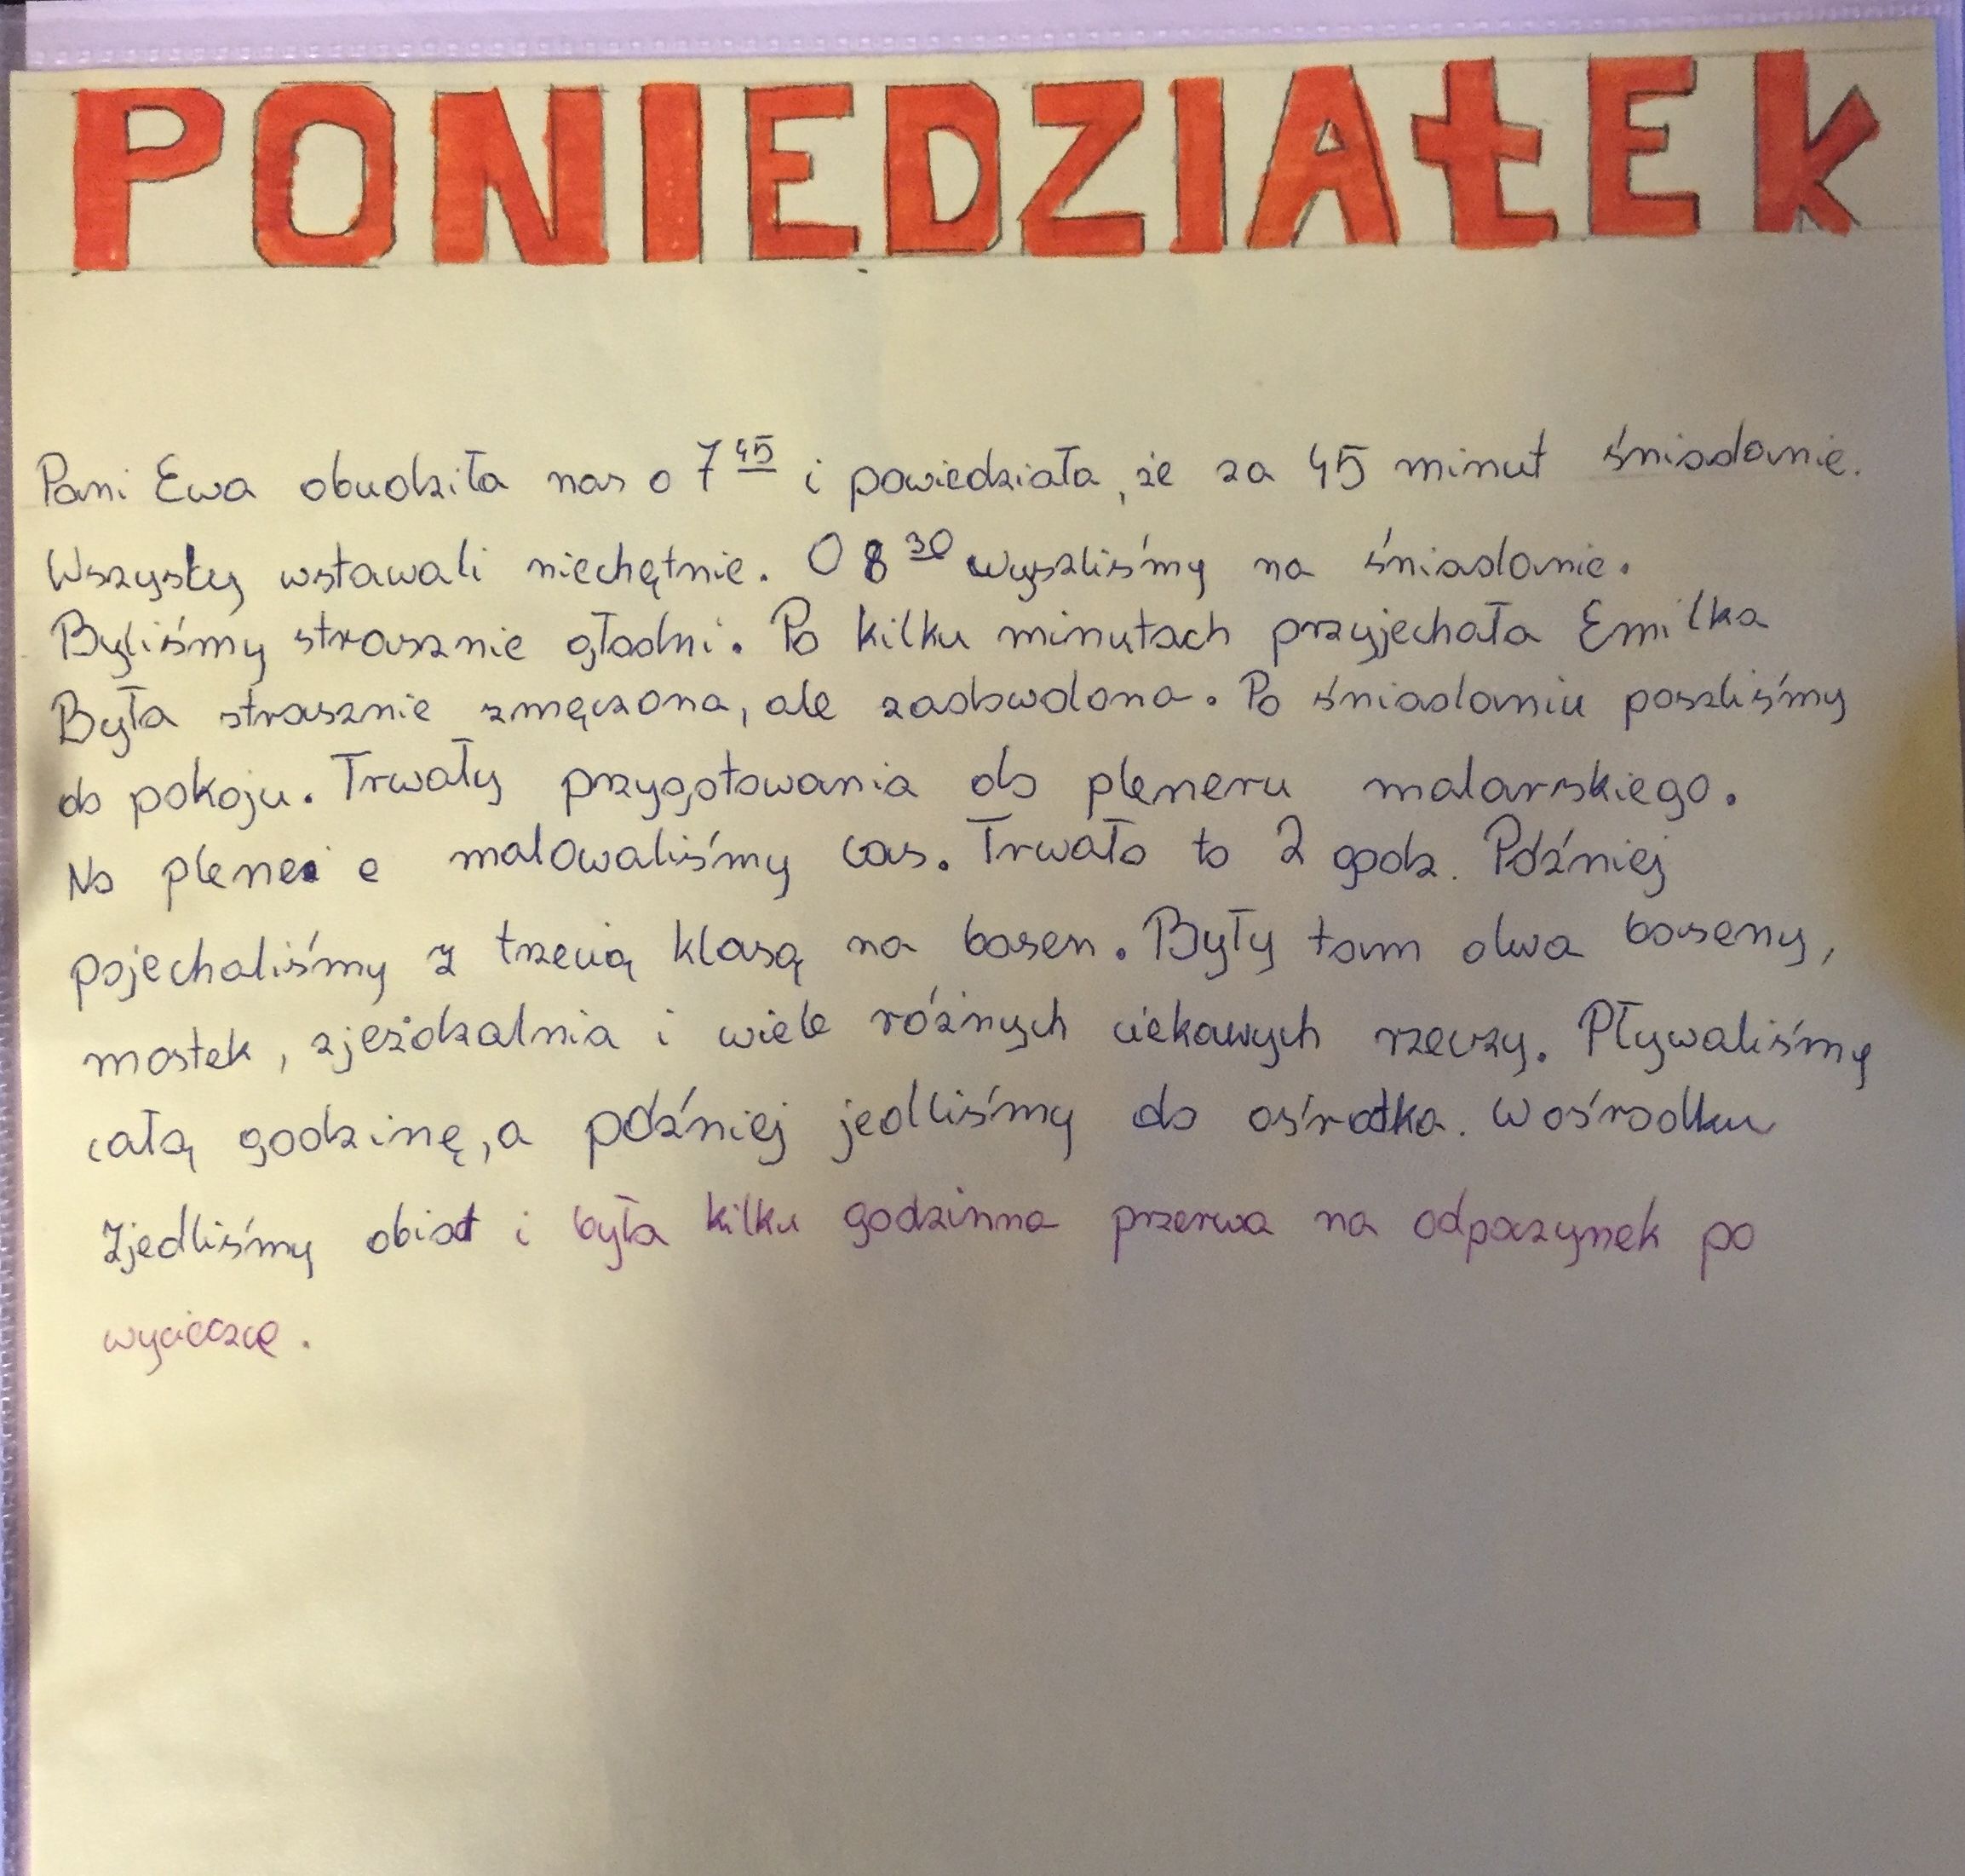 PONIEDZIAŁEK
Pani Ewa obudziła nas o 7 45 i powiedziała, że za 45 minut śniadanie.
Wszyscy wstawali niechętnie. O 8 30 wyszliśmy na śniadanie.
Byliśmy strasznie głodni. Po kilku minutach przyjechała Emilka
Była strasznie zmęczona, ale zadowolona. Po śniadaniu poszliśmy
do pokoju. Trwały przygotowania do pleneru malarskiego.
Na plenerze malowaliśmy las. Trwało to 2 godz. Później
pojechaliśmy z trzecią klasą na basen. Były tam dwa baseny,
mostek, zjeżdżalnia i wiele różnych ciekawych rzeczy. Pływaliśmy
całą godzinę, a później jedliśmy do ośrodka. W ośrodku
zjedliśmy obiad i była kilku godzinna przerwa na odpoczynek po